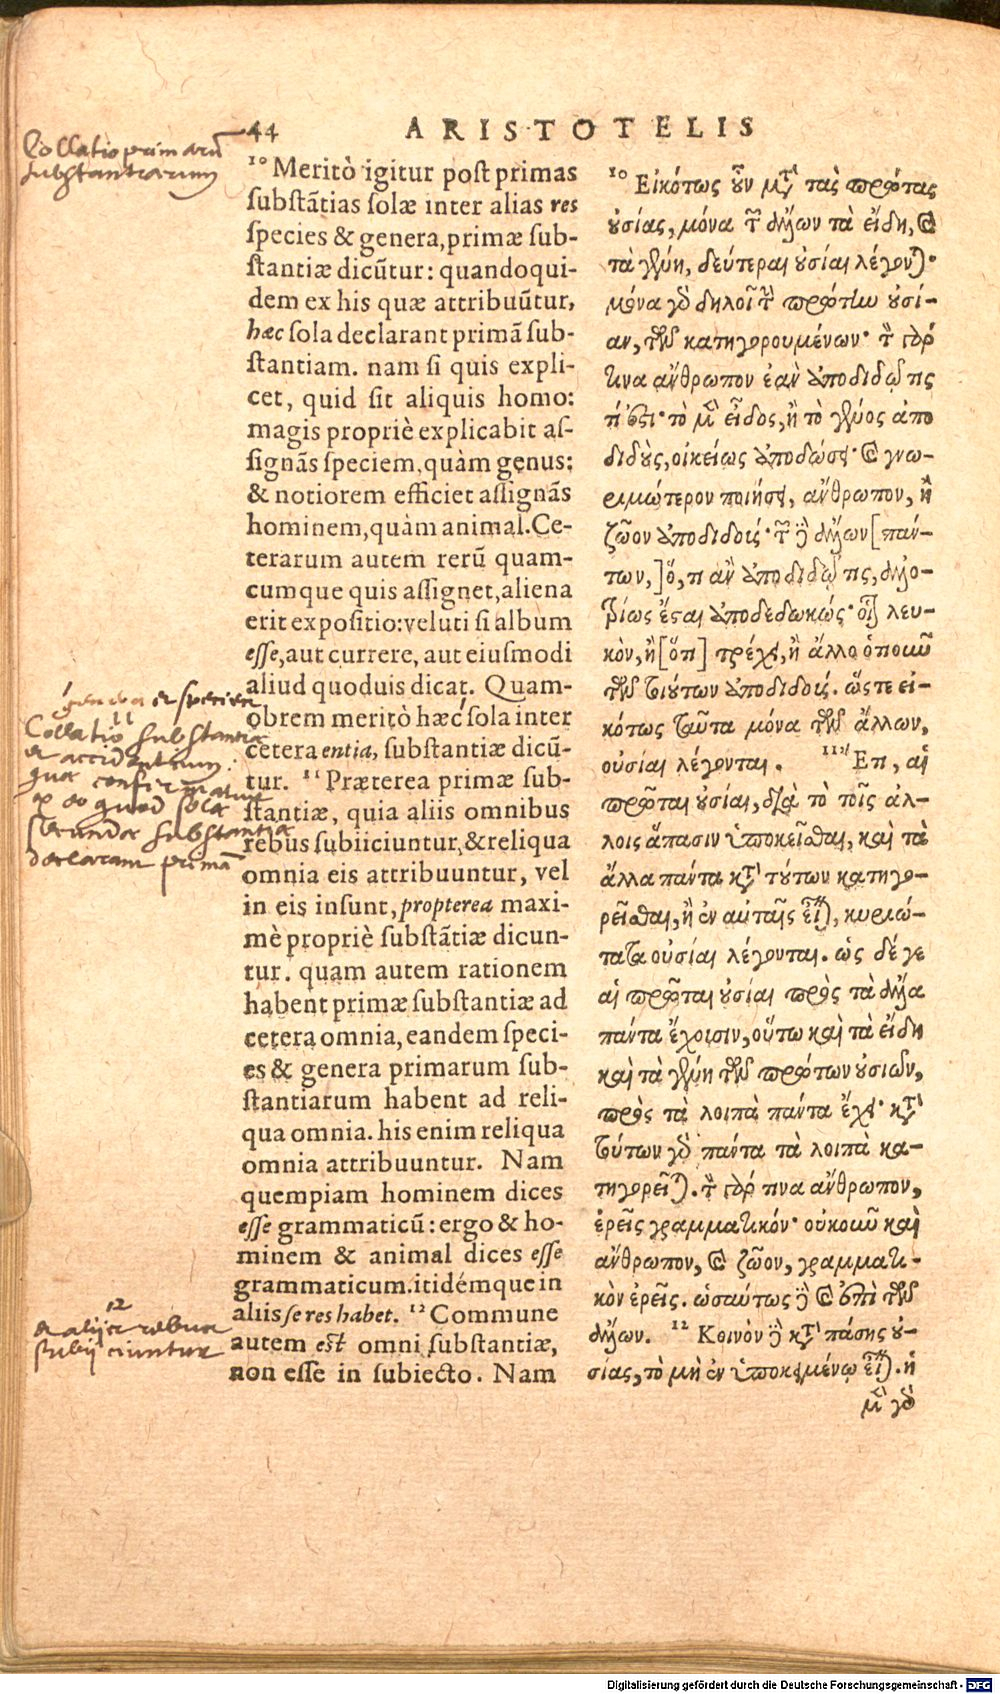 44
ARISTOTELIS
Collatio primarū
substantiarum
¹⁰ Meritò igitur post primas
substātias solæ inter alias res
species & genera, primæ sub-
stantiæ dicūtur: quandoqui-
dem ex his quæ attribuūtur,
hæc sola declarant primā sub-
stantiam. nam si quis expli-
cet, quid sit aliquis homo:
magis propriè explicabit as-
signās speciem, quàm genus:
& notiorem efficiet assignās
hominem, quàm animal. Ce-
terarum autem rerū quam-
cumque quis assignet, aliena
erit expositio: veluti si album
esse, aut currere, aut eiusmodi
aliud quoduis dicat. Quam-
obrem meritò hæc sola inter
cetera entia, substantiæ dicū-
tur. ¹¹ Præterea primæ sub-
stantiæ, quia aliis omnibus
rebus subiiciuntur, & reliqua
omnia eis attribuuntur, vel
in eis insunt, propterea maxi-
mè propriè substātiæ dicun-
tur. quam autem rationem
habent primæ substantiæ ad
cetera omnia, eandem speci-
es & genera primarum sub-
stantiarum habent ad reli-
qua omnia. his enim reliqua
omnia attribuuntur. Nam
quempiam hominem dices
esse grammaticū: ergo & ho-
minem & animal dices esse
grammaticum. itidémque in
aliis se res habet. ¹² Commune
autem est omni substantiæ,
non esse in subiecto. Nam
genera et species
11
Collatio substantiæ
et accidentium.
quæ confirmatur
ex eo quod solæ
secundæ substantiæ
declarant primā
12
et alijs rebus
subijciuntur
¹⁰ Εἰκότως οὖν μετὰ τὰς πρώτας
οὐσίας, μόνα τῶν ἄλλων τὰ εἴδη, καὶ
τὰ γένη, δεύτεραι οὐσίαι λέγονται·
μόνα γὰρ δηλοῖ τὴν πρώτην οὐσί-
αν, τῶν κατηγορουμένων· τὸν γὰρ
τινα ἄνθρωπον ἐὰν ἀποδιδῷ τις
τί ἐστι· τὸ μὲν εἶδος, ἢ τὸ γένος ἀπο
διδοὺς, οἰκείως ἀποδώσει· καὶ γνω-
ριμώτερον ποιήσει, ἄνθρωπον, ἢ
ζῶον ἀποδιδοίς· τῶν δὲ ἄλλων [πάν-
των,] ὅ, τι ἂν ἀποδιδῷ τις, ἀλλο-
τρίως ἔσται ἀποδεδωκώς· οἷον λευ-
κὸν, ἢ [ὅτι] τρέχει, ἢ ἄλλο ὁποιοῦν
τῶν τοιούτων ἀποδιδοίς. ὥστε εἰ-
κότως ταῦτα μόνα τῶν ἄλλων,
οὐσίαι λέγονται. ¹¹ Ἔτι, αἱ
πρῶται οὐσίαι, διὰ τὸ τοῖς ἀλ-
λοις ἅπασιν ὑποκεῖσθαι, καὶ τὰ
ἄλλα πάντα κατὰ τούτων κατηγο-
ρεῖσθαι, ἢ ἐν αὐταῖς εἶναι, κυριώ-
ταται οὐσίαι λέγονται. ὡς δέ γε
αἱ πρῶται οὐσίαι πρὸς τὰ ἄλλα
πάντα ἔχουσιν, οὕτω καὶ τὰ εἴδη
καὶ τὰ γένη τῶν πρώτων οὐσιῶν,
πρὸς τὰ λοιπὰ πάντα ἔχει· κατὰ
τούτων γὰρ πάντα τὰ λοιπὰ κα-
τηγορεῖται. τὸν γὰρ τινα ἄνθρωπον,
ἐρεῖς γραμματικόν· οὐκοῦν καὶ
ἄνθρωπον, καὶ ζῶον, γραμματι-
κὸν ἐρεῖς. ὡσαύτως δὲ καὶ ἐπὶ τῶν
ἄλλων. ¹² Κοινὸν δὲ κατὰ πάσης οὐ-
σίας, τὸ μὴ ἐν ὑποκειμένῳ εἶναι. ἡ
μὲν γὰρ
Digitalisierung gefördert durch die Deutsche Forschungsgemeinschaft - DFG